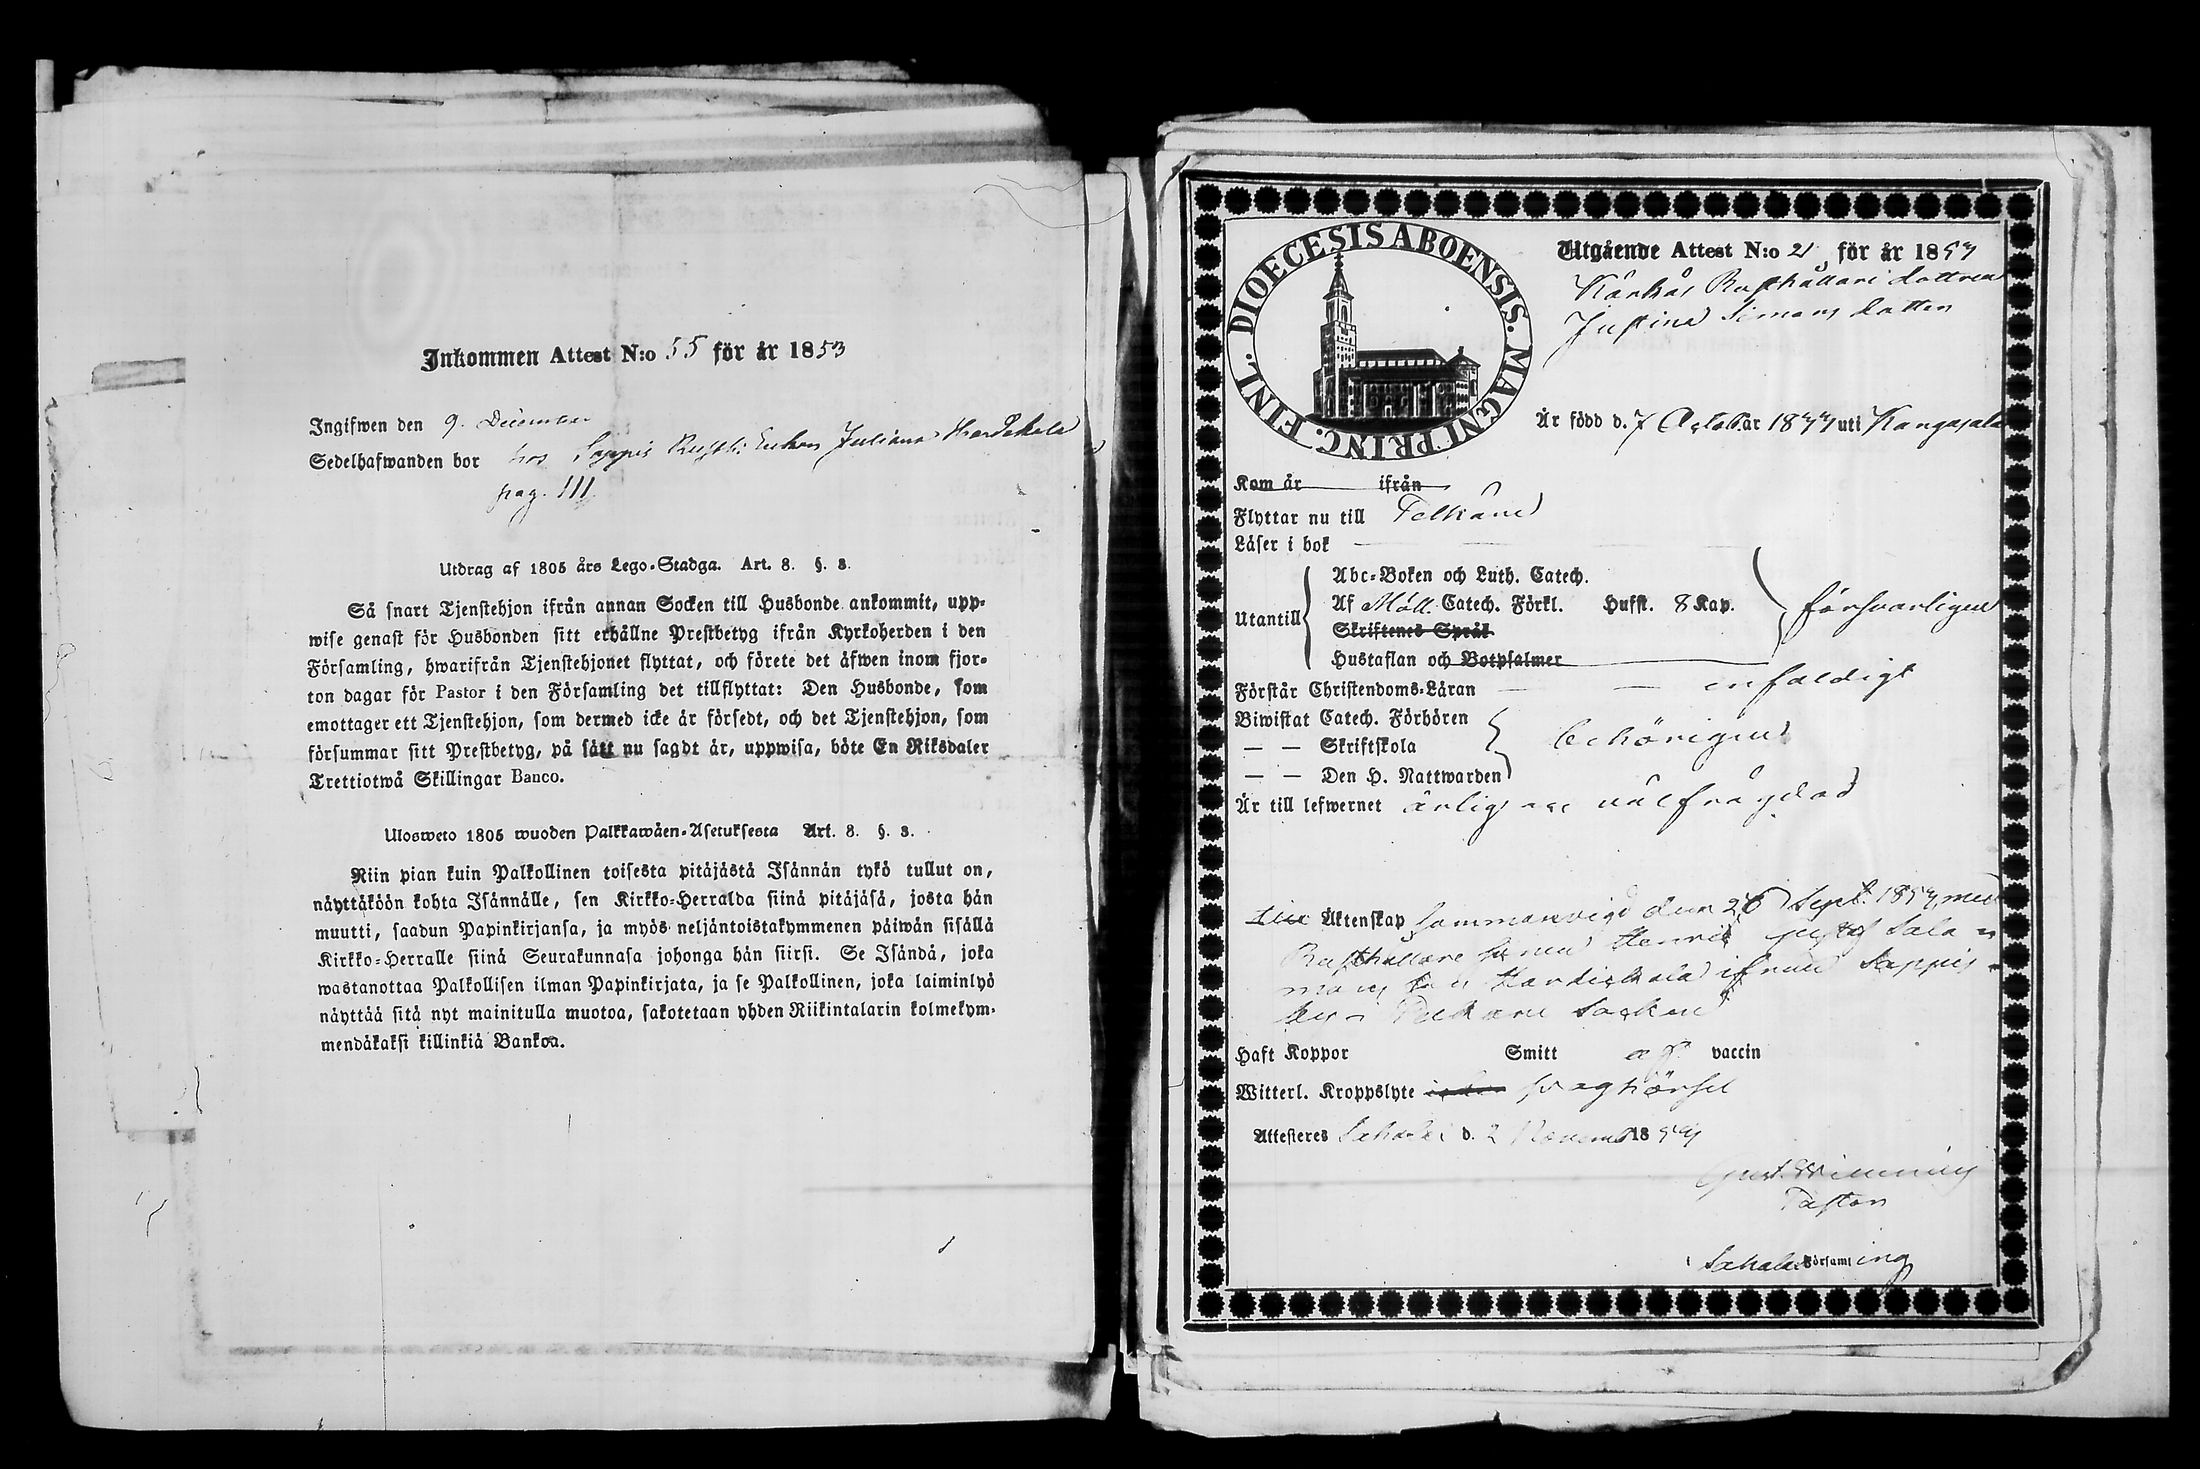 Inkommen Attest N:o 55 för år 1853
Ingifwen den 9. December
Sedelhafwanden bor hos Sappis Rusth: Enkan Juliana
pag. 111.
Utdrag af 1805 års Lego-Stadga. Art. 8. §. 3.
Så snart Tjenstehjon ifrån annan Socken till Husbonde ankommit, upp-
wise genast för Husbonden sitt erhållne Prestbetyg ifrån Kyrkoherden i den
Församling, hwarifrån Tjenstehjonet flyttat, och förete det äfwen inom fjor-
ton dagar för Pastor i den Församling det tillflyttat: Den Husbonde, som
emottager ett Tjenstehjon, som dermed icke är försedt, och det Tjenstehjon, som
försummar sitt Prestbetyg, på sätt nu sagdt är, uppwisa, böte En Riksdaler
Trettiotwå Skillingar Banco.
Ulosweto 1805 wuoden Palkkawäen-Asetuksesta Art. 8. §. 3.
Niin pian kuin Palkollinen toisesta pitäjästä Isännän tykö tullut on,
näyttäköön kohta Isännälle, sen Kirkko-Herralda siinä pitäjäsä, josta hän
muutti, saadun Papinkirjansa, ja myös neljäntoistakymmenen päiwän sisällä
Kirkko-Herralle siinä Seurakunnasa johonga hän siirsi. Se Isändä, joka
wastanottaa Palkollisen ilman Papinkirjata, ja se Palkollinen, joka laiminlyö
näyttää sitä nyt mainitulla muotoa, sakotetaan yhden Riikintalarin kolmekym-
mendäkaksi killinkiä Bankoa.
DIOECESIS ABOENSIS. MAGNI PRINC. FINL.
Utgående Attest N:o 21 för år 1853
Rusthållare dottren
Justina Simons dotter
Är född d. 7 Octob. år 1833 uti Kangasala
Kom år ifrån
Flyttar nu till Pelkäne
Läser i bok
Utantill
Abc-Boken och Luth. Catech.
Af Möll. Catech. Förkl. Hufst. 8 Kap.
försvarligen
Skriftenes Språk
Hustaflan och Botpsalmer
Förstår Christendoms-Läran enfaldigt
Biwistat Catech. Förhören
— — Skriftskola
behörigen
— — Den H. Nattwarden
Är till lefwernet ärlig och välfrägdad
till Äktenskap sammanvigd den 26 Sept. 1853 med
Rusthållare sonen Henric Gustaf Salo-
mons son Hardikkala ifrån Sappis
by i Pelkäne Socken
Haft Koppor Smitt af vaccin
Witterl. Kroppslyte svag hörsel
Attesteres Sahalax d. 2 Novemb 1853
Pastor
i Sahalax Församling